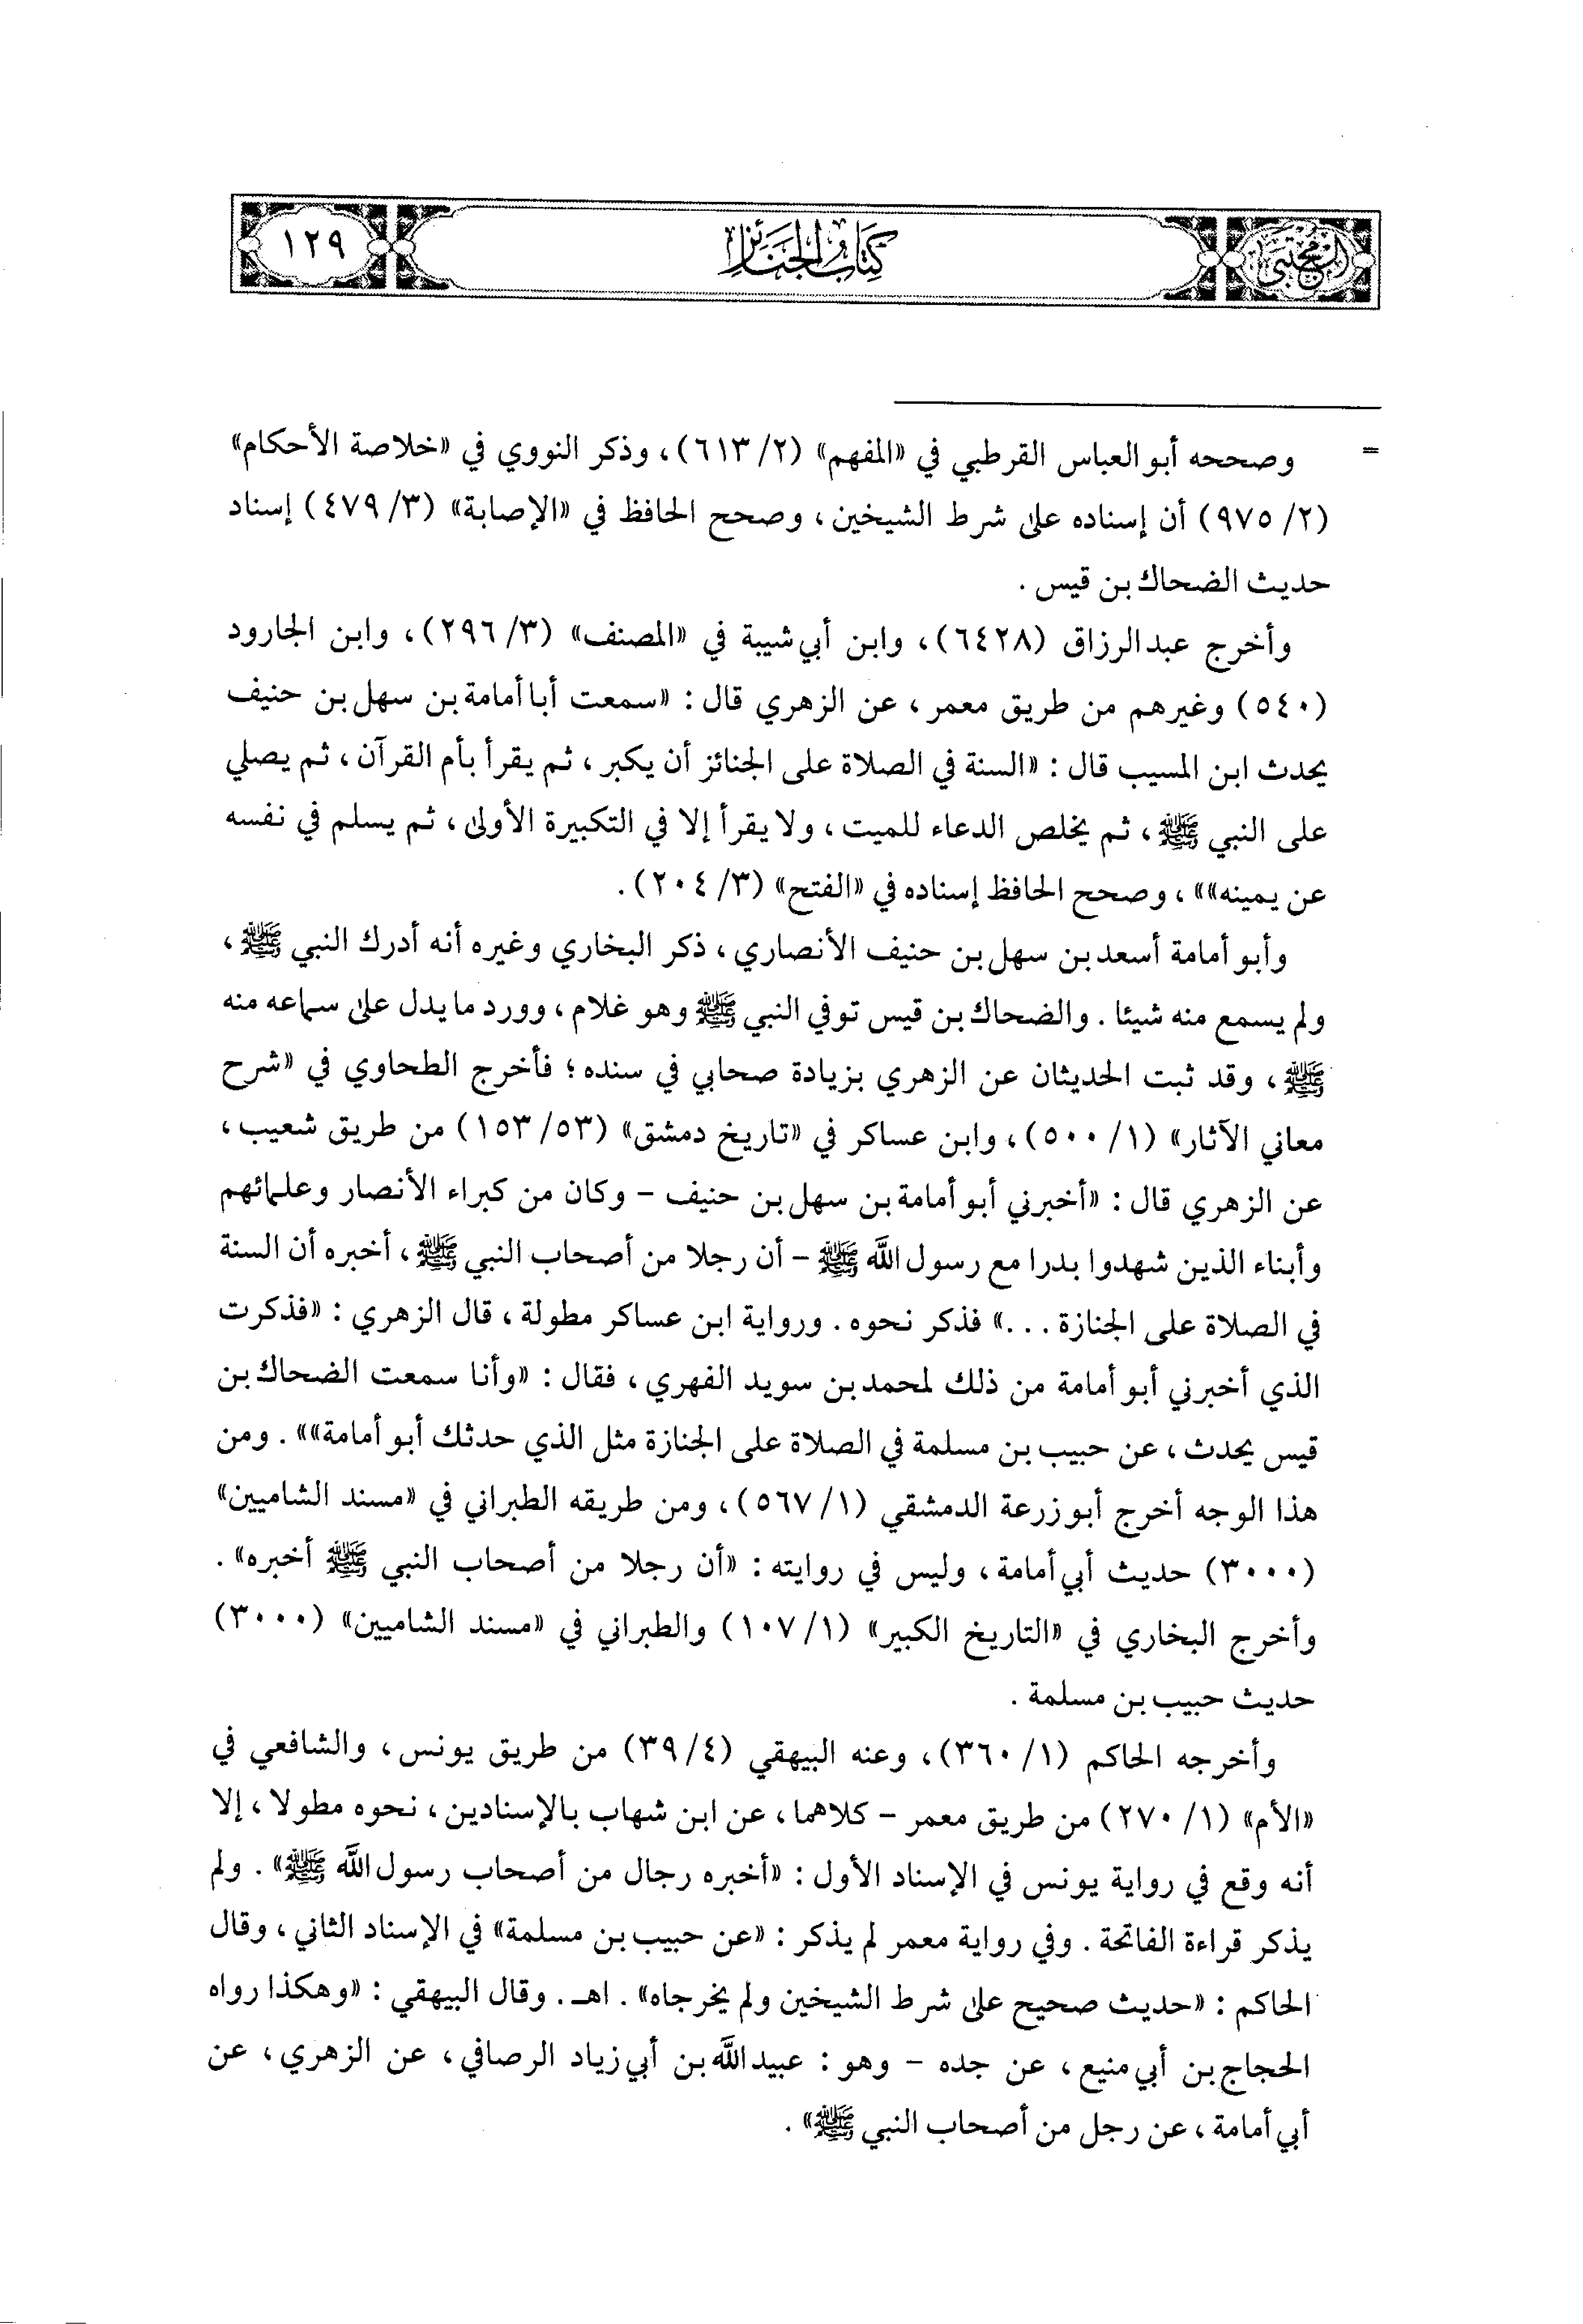 المجتبى كتاب الجنائز ١٢٩
= وصححه أبو العباس القرطبي في «المفهم» (٢/ ٦١٣)، وذكر النووي في «خلاصة الأحكام»
(٢/ ٩٧٥) أن إسناده على شرط الشيخين، وصحح الحافظ في «الإصابة» (٣/ ٤٧٩) إسناد
حديث الضحاك بن قيس .
وأخرج عبد الرزاق (٦٤٢٨)، وابن أبي شيبة في «المصنف» (٣/ ٢٩٦)، وابن الجارود
(٥٤٠) وغيرهم من طريق معمر، عن الزهري قال: «سمعت أبا أمامة بن سهل بن حنيف
يحدث ابن المسيب قال: «السنة في الصلاة على الجنائز أن يكبر، ثم يقرأ بأم القرآن، ثم يصلي
على النبي ﷺ، ثم يخلص الدعاء للميت، ولا يقرأ إلا في التكبيرة الأولى، ثم يسلم في نفسه
عن يمينه»»، وصحح الحافظ إسناده في «الفتح» (٣/ ٢٠٤).
وأبو أمامة أسعد بن سهل بن حنيف الأنصاري، ذكر البخاري وغيره أنه أدرك النبي ﷺ،
ولم يسمع منه شيئا . والضحاك بن قيس توفي النبي ﷺ وهو غلام، وورد ما يدل على سماعه منه
ﷺ، وقد ثبت الحديثان عن الزهري بزيادة صحابي في سنده؛ فأخرج الطحاوي في «شرح
معاني الآثار» (١/ ٥٠٠)، وابن عساكر في «تاريخ دمشق» (٥٣/ ١٥٣) من طريق شعيب،
عن الزهري قال: «أخبرني أبو أمامة بن سهل بن حنيف - وكان من كبراء الأنصار وعلمائهم
وأبناء الذين شهدوا بدرا مع رسول الله ﷺ - أن رجلا من أصحاب النبي ﷺ، أخبره أن السنة
في الصلاة على الجنازة ...» فذكر نحوه. ورواية ابن عساكر مطولة، قال الزهري: «فذكرت
الذي أخبرني أبو أمامة من ذلك لمحمد بن سويد الفهري، فقال: «وأنا سمعت الضحاك بن
قيس يحدث، عن حبيب بن مسلمة في الصلاة على الجنازة مثل الذي حدثك أبو أمامة»». ومن
هذا الوجه أخرج أبو زرعة الدمشقي (١/ ٥٦٧)، ومن طريقه الطبراني في «مسند الشاميين»
(٣٠٠٠) حديث أبي أمامة، وليس في روايته: «أن رجلا من أصحاب النبي ﷺ أخبره».
وأخرج البخاري في «التاريخ الكبير» (١/ ١٠٧) والطبراني في «مسند الشاميين» (٣٠٠٠)
حديث حبيب بن مسلمة .
وأخرجه الحاكم (١/ ٣٦٠)، وعنه البيهقي (٤/ ٣٩) من طريق يونس، والشافعي في
«الأم» (١/ ٢٧٠) من طريق معمر - كلاهما، عن ابن شهاب بالإسنادين، نحوه مطولا، إلا
أنه وقع في رواية يونس في الإسناد الأول: «أخبره رجال من أصحاب رسول الله ﷺ». ولم
يذكر قراءة الفاتحة . وفي رواية معمر لم يذكر: «عن حبيب بن مسلمة» في الإسناد الثاني، وقال
الحاكم: «حديث صحيح على شرط الشيخين ولم يخرجاه». اهـ. وقال البيهقي: «وهكذا رواه
الحجاج بن أبي منيع، عن جده - وهو: عبيد الله بن أبي زياد الرصافي، عن الزهري، عن
أبي أمامة، عن رجل من أصحاب النبي ﷺ».